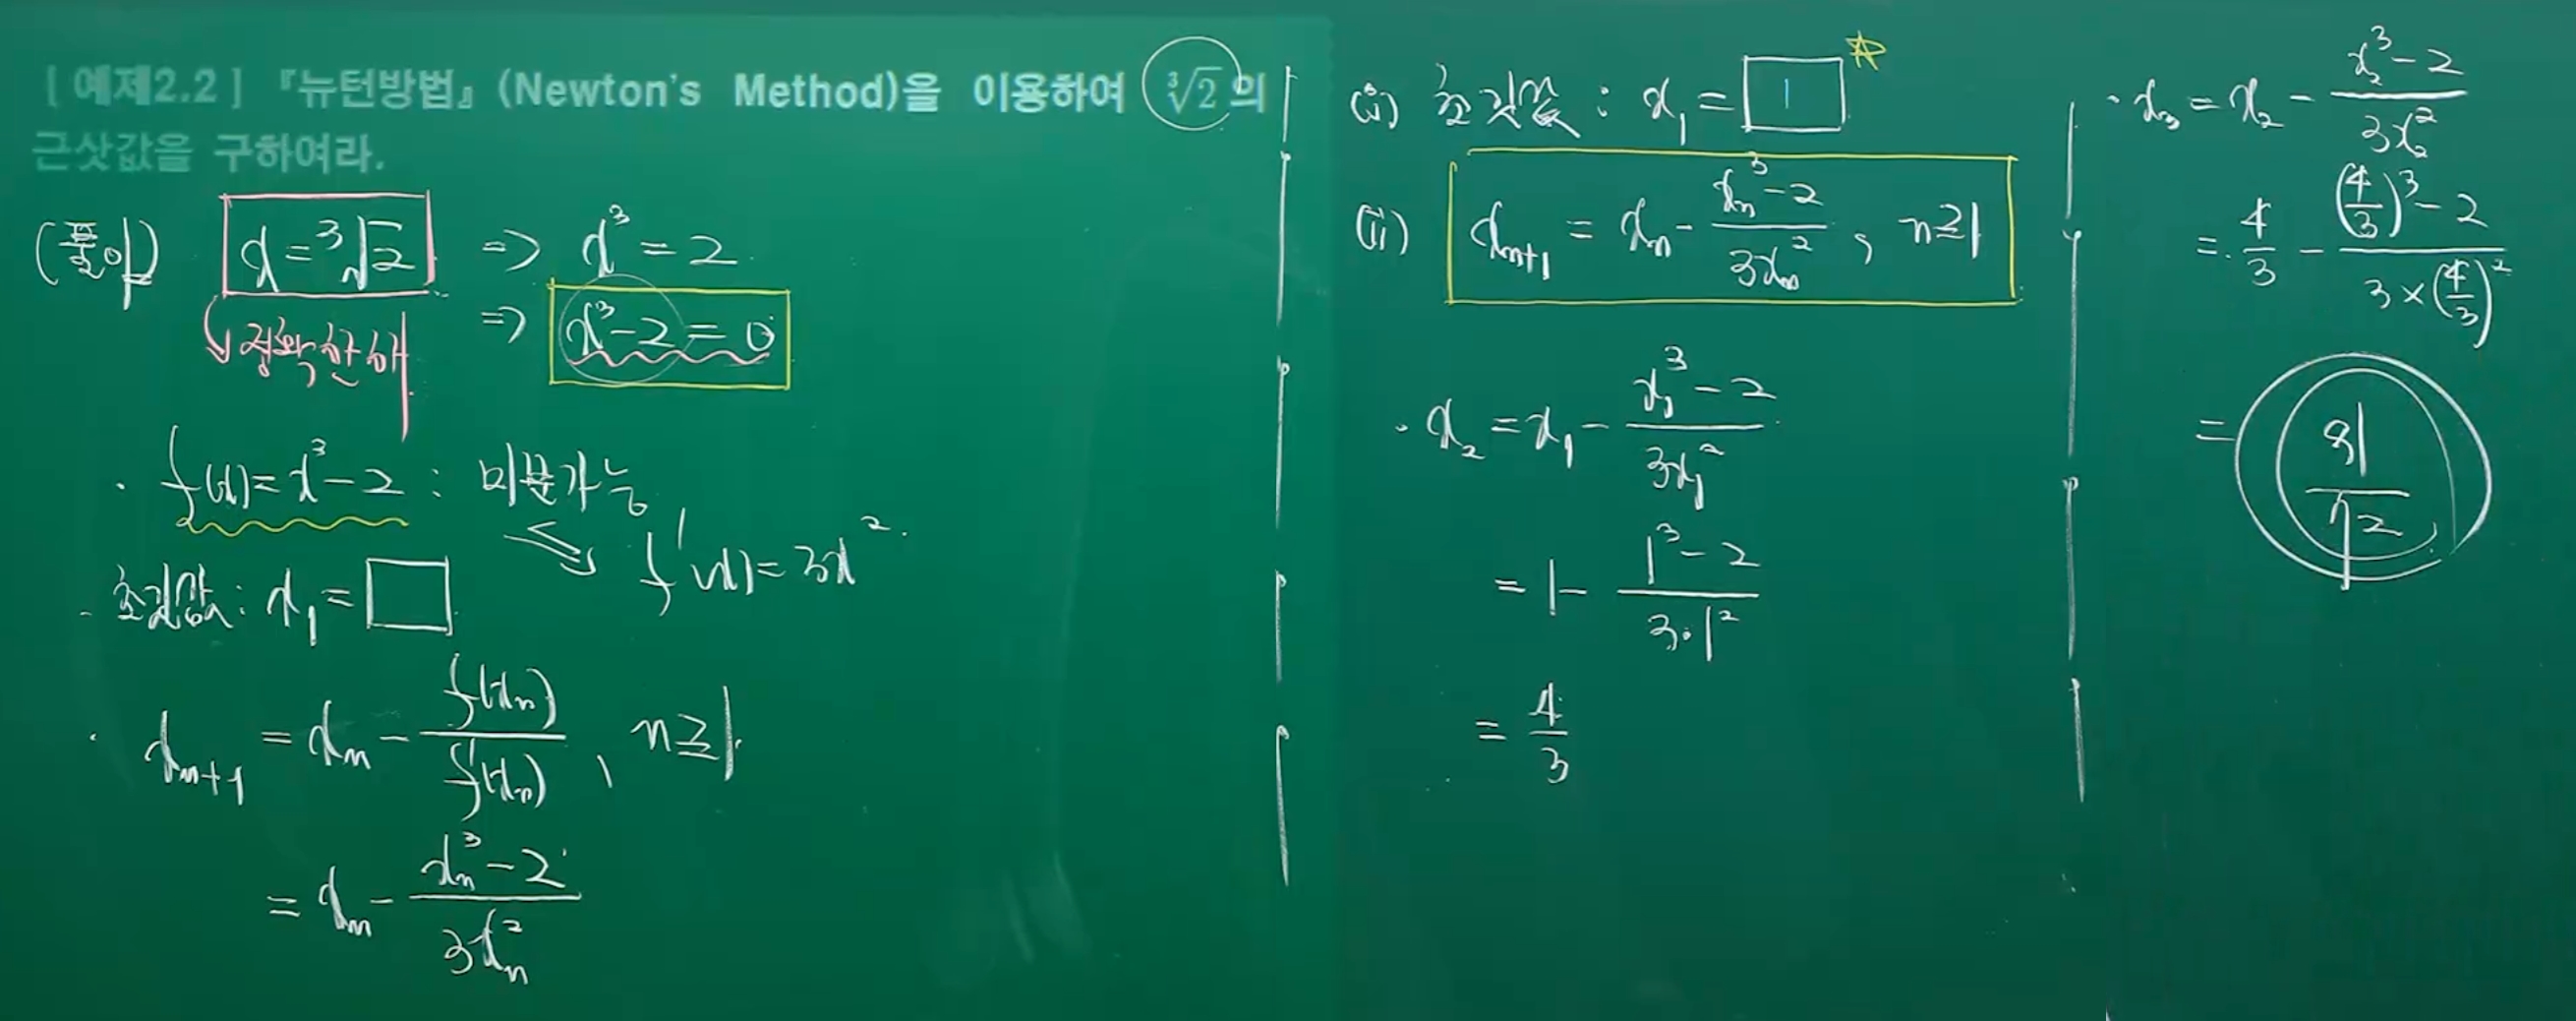 [ 예제2.2 ] 『뉴턴방법』(Newton's Method)을 이용하여 ∛2 의
근삿값을 구하여라.
(풀이) x = ³√2 ⇒ x³ = 2
⇒ x³ - 2 = 0
정확한 해
· f(x) = x³ - 2 : 미분가능
f'(x) = 3x².
- 초깃값 : x₁ = □
· xₙ₊₁ = xₙ - f(xₙ)/f'(xₙ) , n ≥ 1.
= xₙ - (xₙ³ - 2)/(3xₙ²)
(i) 초깃값 : x₁ = 1
(ii) xₙ₊₁ = xₙ - (xₙ³ - 2)/(3xₙ²) , n ≥ 1
· x₂ = x₁ - (x₁³ - 2)/(3x₁²)
= 1 - (1³ - 2)/(3·1²)
= 4/3
· x₃ = x₂ - (x₂³ - 2)/(3x₂²)
= 4/3 - ((4/3)³ - 2)/(3 × (4/3)²)
= 91/72